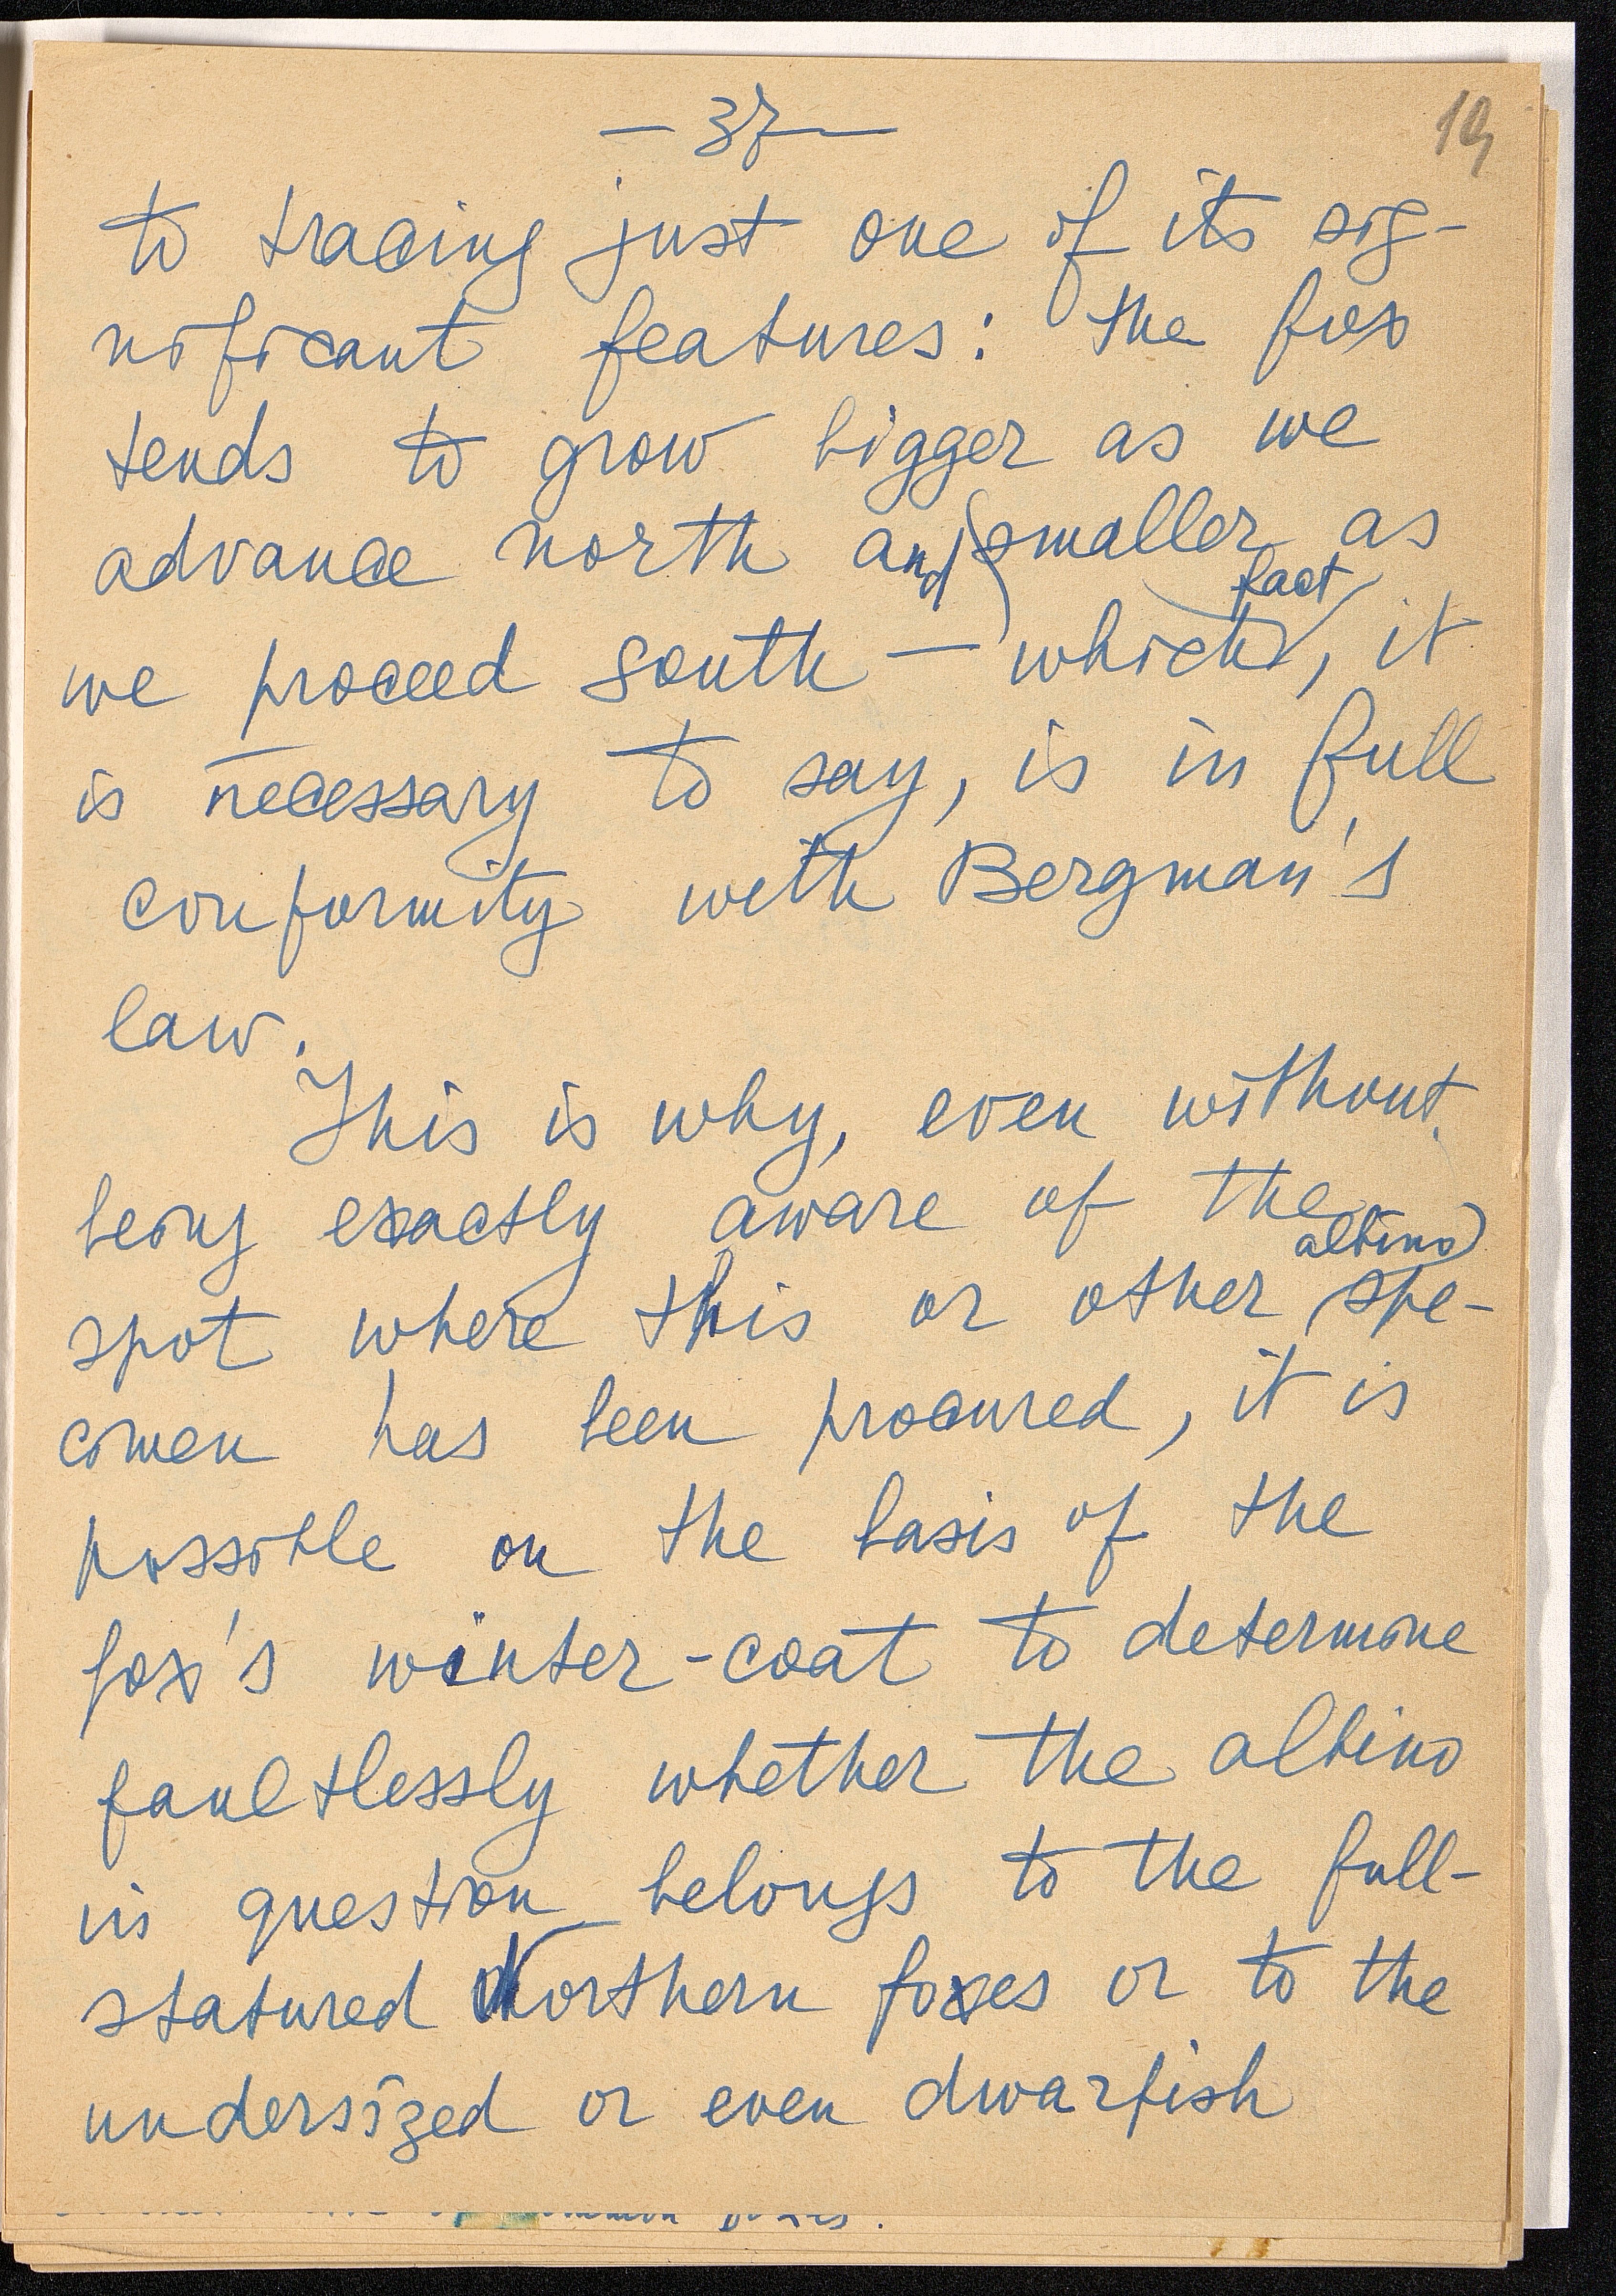 — 37 —
19
to tracing just one of its sig-
nificant features: the fox
tends to grow bigger as we
advance north and smaller as
fact
we proceed south — which, it
is necessary to say, is in full
conformity with Bergman's
law.
This is why, even without
being exactly aware of the
albino
spot where this or other spe-
cimen has been procured, it is
possible on the basis of the
fox's winter-coat to determine
faultlessly whether the albino
in question belongs to the full-
statured Northern foxes or to the
undersized or even dwarfish